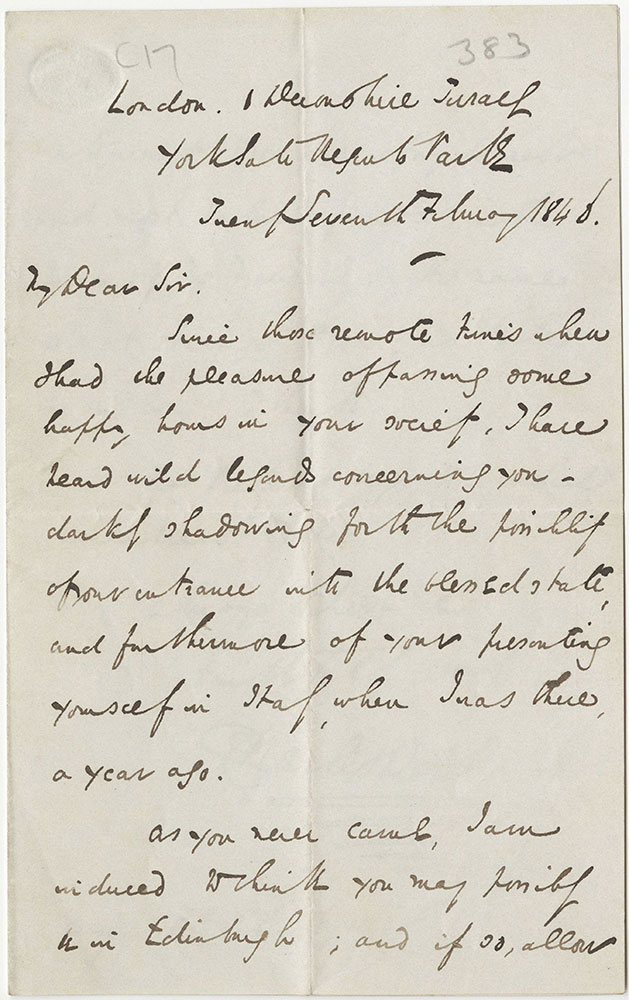 C17 383
London. 1 Devonshire Terrace
York Gate Regents Park
Twenty Seventh February 1846.
My Dear Sir.
Since those remote times when
I had the pleasure of passing some
happy hours in your society, I have
heard wild legends concerning you –
darkly shadowing forth the possibility
of your entrance into the blessed state,
and furthermore of your presenting
yourself in Italy, when I was there,
a year ago.
As you never came, I am
induced to think you may possibly
be in Edinburgh; and if so, allow